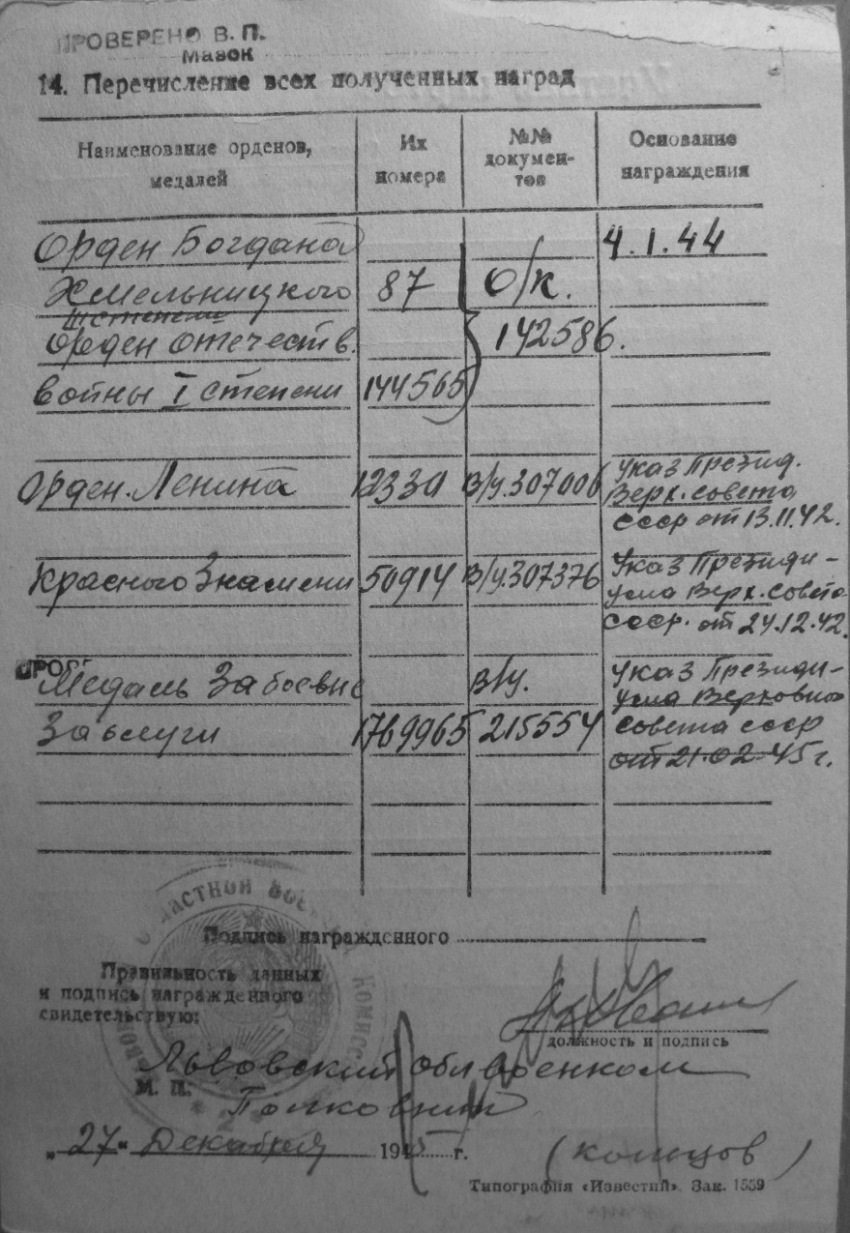 ПРОВЕРЕНО В. П.
Мазок
14. Перечисление всех полученных наград
Наименование орденов, медалей
Их номера
№№ докумен- тов
Основание награждения
Орден Богдана 4.1.44
Хмельницкого 87 О/к.
III степени
Орден Отечеств. 142586.
Войны I степени 144565
Орден Ленина 12330 В/у.307006 Указ Презид.
Верх. Совета
СССР от 13.11.42.
Красного Знамени 50914 В/у.307376 Указ Президи-
ума Верх. Совета
СССР. от 24.12.42.
Медаль За боевые В/у. Указ Президи-
ума Верховно
Заслуги 1769965 215554 Совета СССР
от 21.02.45г.
Подпись награжденного
Правильность данных
и подпись награжденного
свидетельствую:
должность и подпись
Львовский Облвоенком
М. П.
Полковник
„27" Декабря 1945 г. (Копцов)
Типография «Известий». Зак. 1559